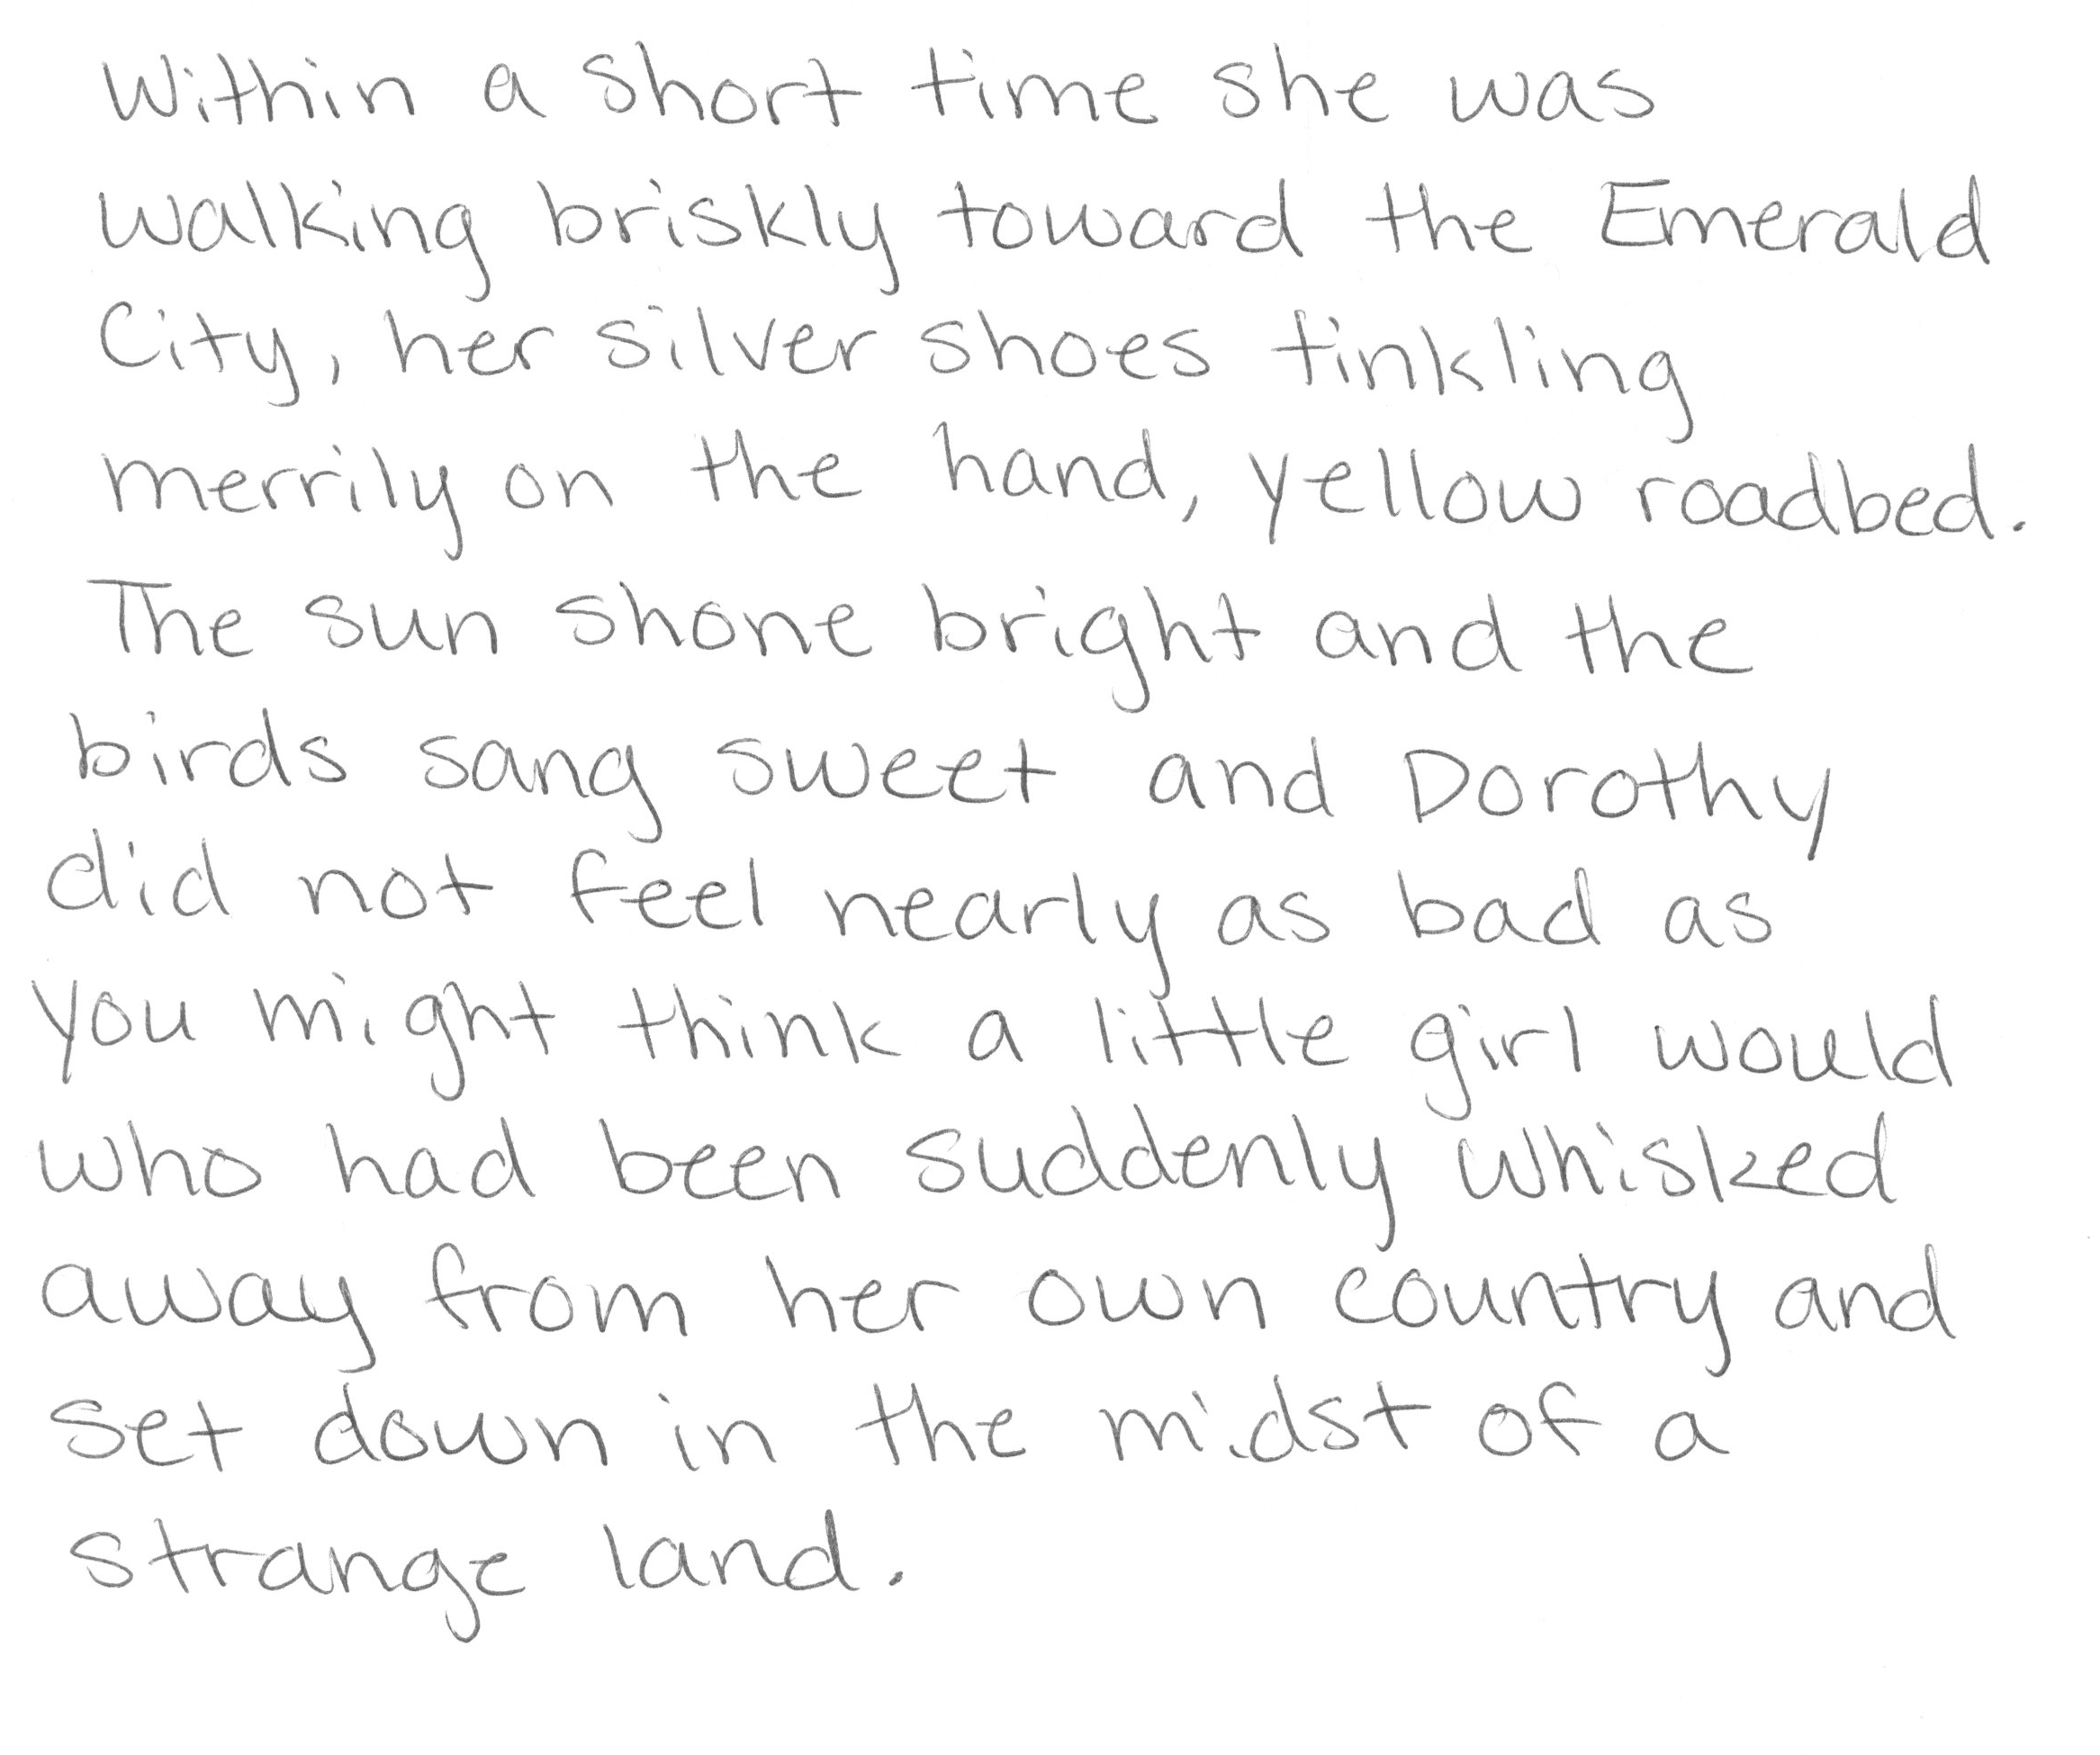 Within a short time she was
walking briskly toward the Emerald
City, her silver shoes tinkling
merrily on the hand, yellow roadbed.
The sun shone bright and the
birds sang sweet and Dorothy
did not feel nearly as bad as
you might think a little girl would
who had been suddenly whisked
away from her own country and
set down in the midst of a
strange land.